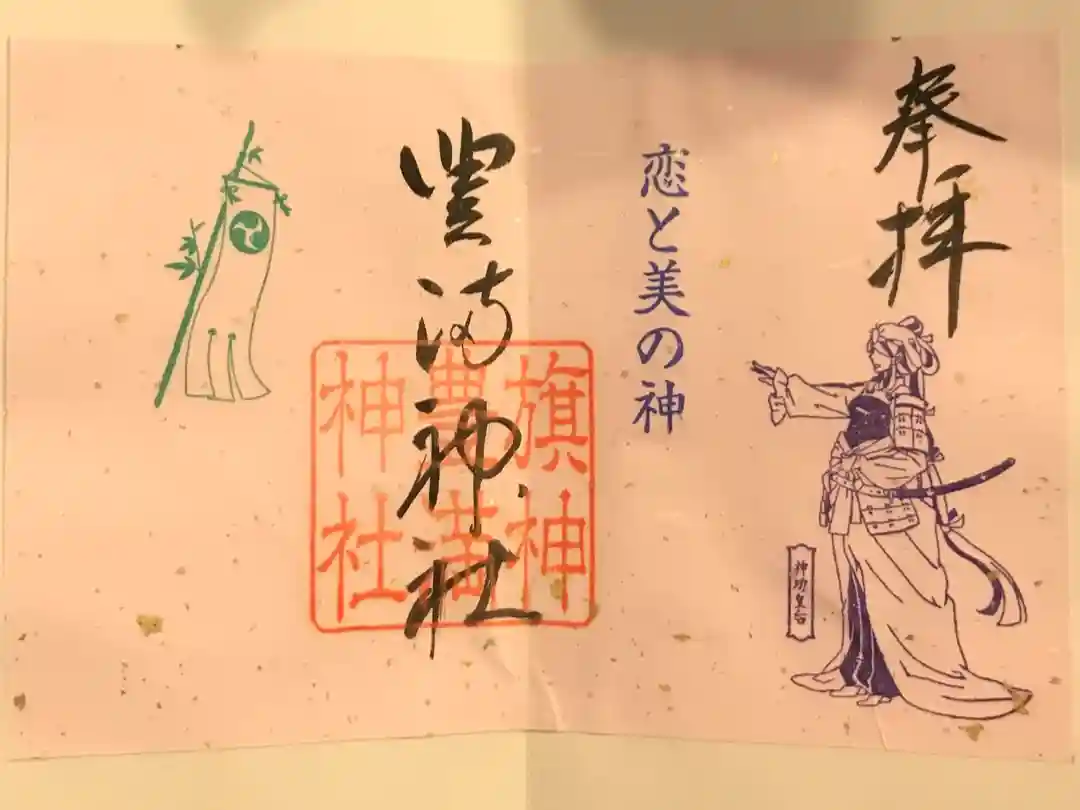 奉拝
恋と美の神
神功皇后
豊満神社
旗神
豊満
神社